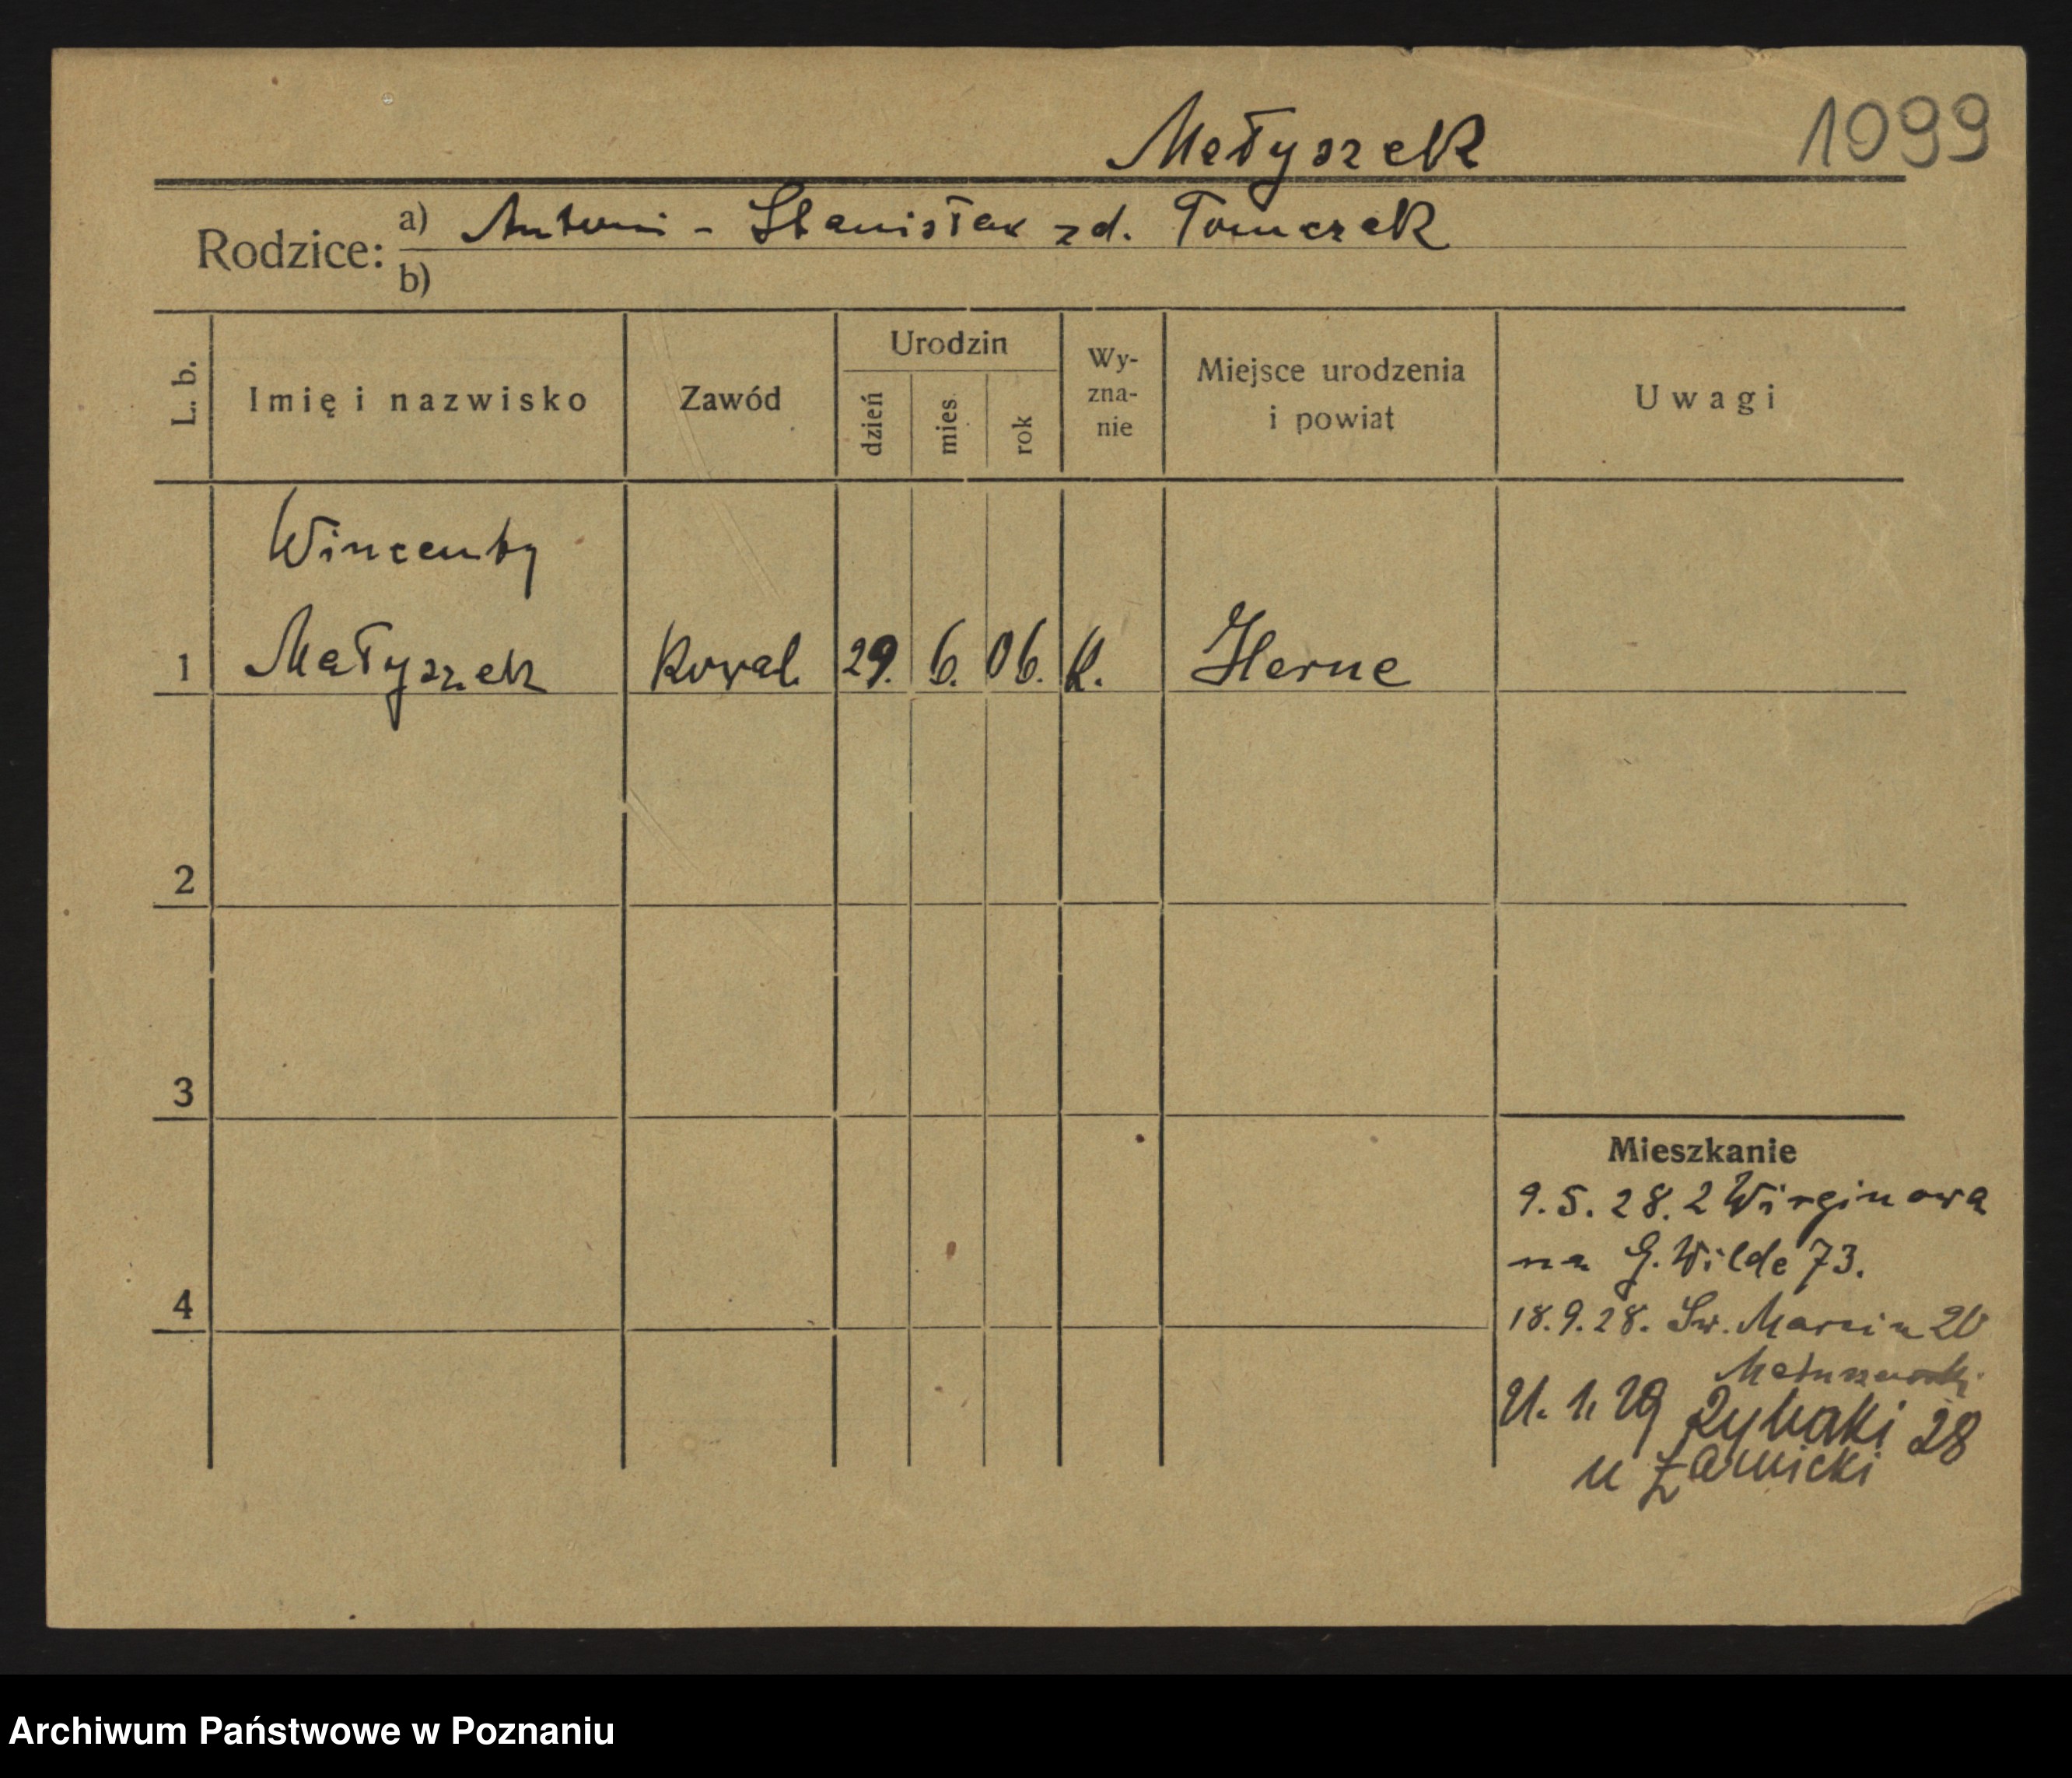 Małyszek
1099
Rodzice: a) Antoni - Stanisław zd. Tomczak
b)
L. b.
Imię i nazwisko
Zawód
Urodzin
dzień
mies.
rok
Wy-
zna-
nie
Miejsce urodzenia
i powiat
Uwagi
Wincenty
1 Małyszek Kowal. 29. 6. 06. K. Herne
2
3
4
Mieszkanie
9.5.28. z
na G. Wilde 73.
18.9.28. Św. Marcin
21. 1. 29 Rybaki 28
u
Archiwum Państwowe w Poznaniu